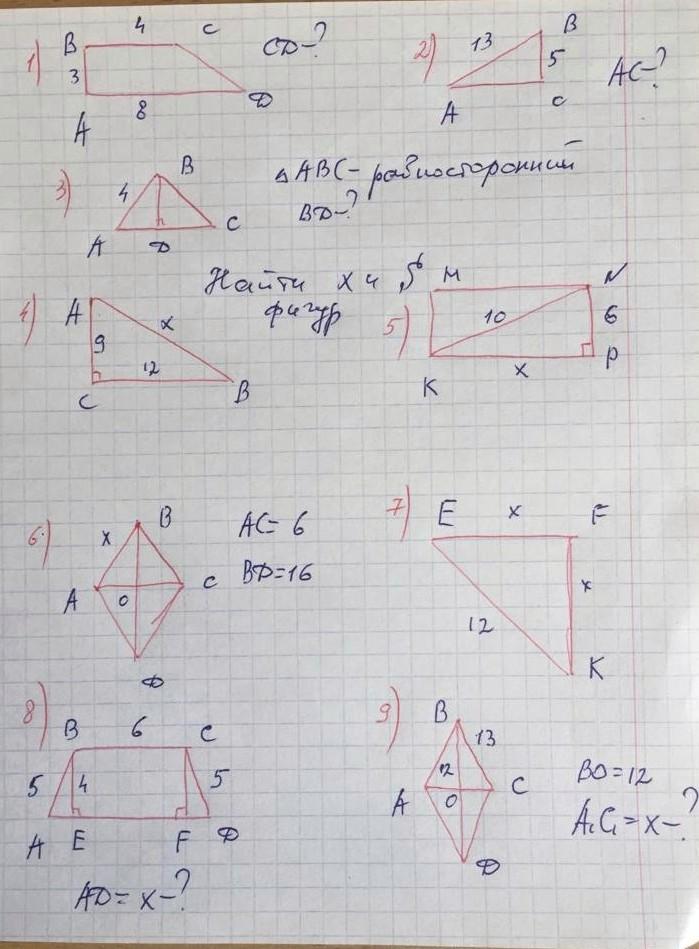 1) B 4 C CD-?
3
A 8 D
2) 13 B
5 AC-?
A C
3) 4 B △ABC - равносторонний
BD-?
A D C
Найти x и S
фигур
4) A x
9
12
C B
5) M N
10 6
K x P
6) x B AC = 6
BD = 16
A O C
D
7) E x F
x
12
K
8) B 6 C
5 4 5
A E F D
AD = x - ?
9) B 13
12 BO = 12
A O C
D